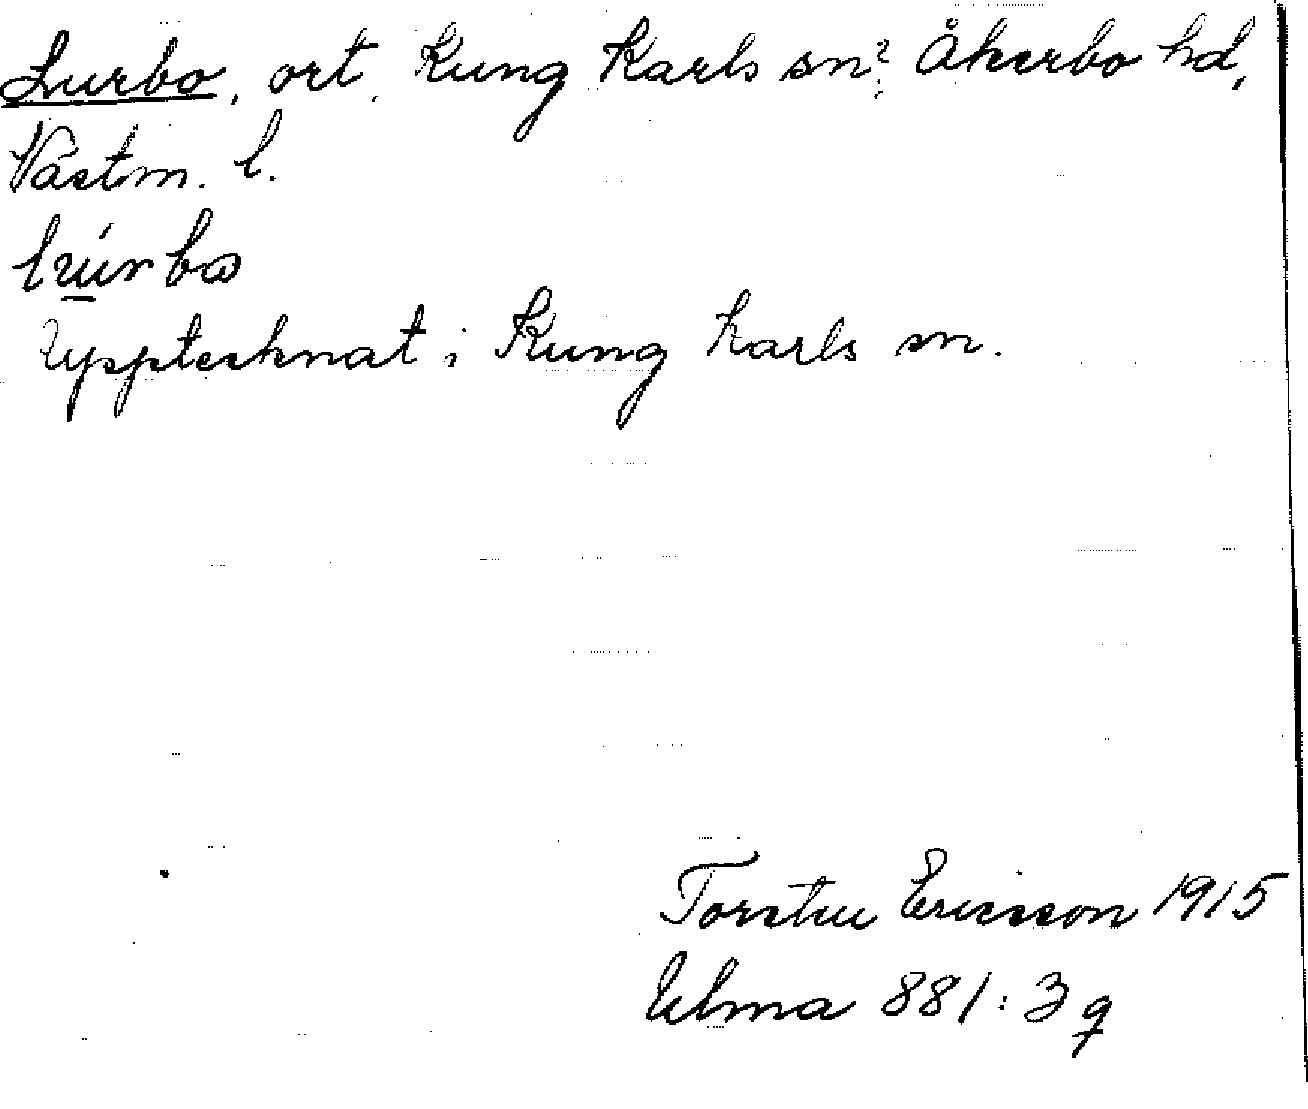 Lurbo, ort, Kung Karls sn? Åkerbo hd,
Västm. l.
Upptecknat i Kung Karls sn.
Torsten Ericsson 1915
Ulma 881:3 q